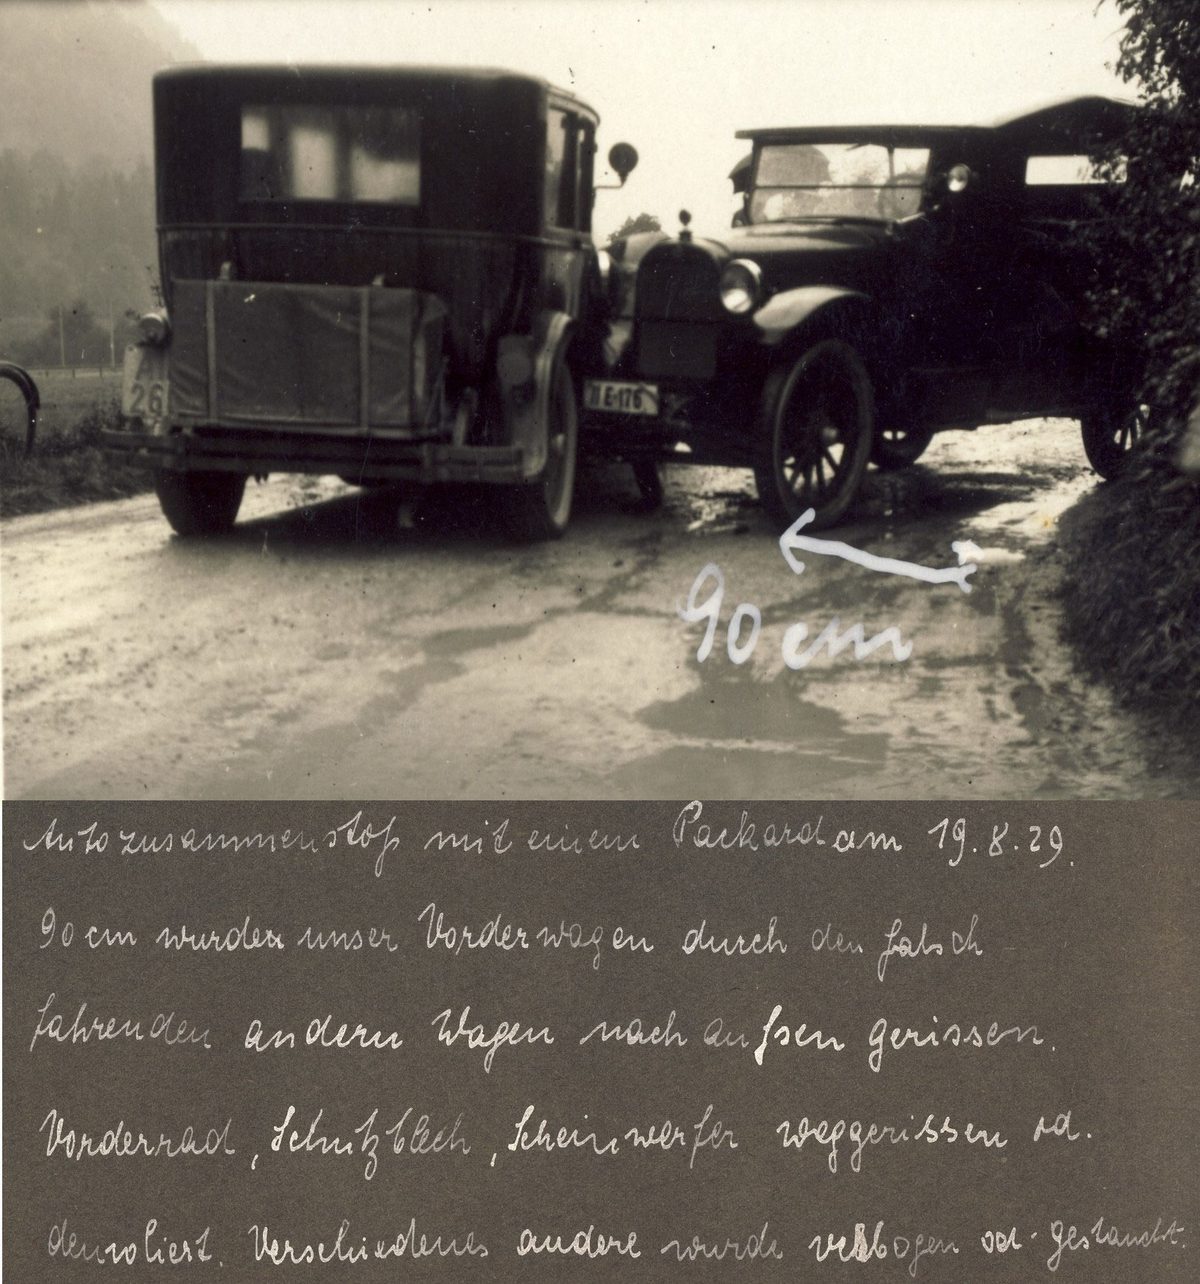 26
II E-176
90 cm
Autozusammenstoß mit einem Packard am 19.8.29.
90 cm wurden unser Vorderwagen durch den falsch
fahrenden andern Wagen nach außen gerissen.
Vorderrad, Schutzblech, Scheinwerfer weggerissen od.
demoliert. Verschiedenes andere wurde verbogen od. gestaucht.